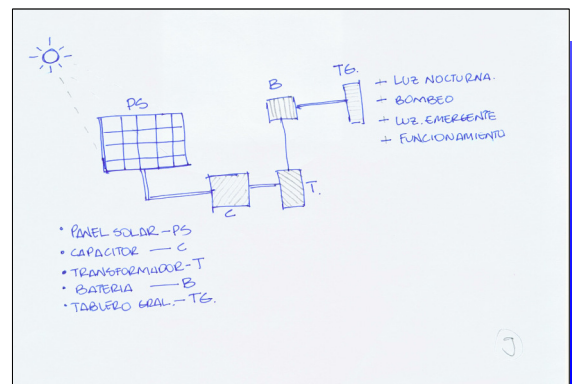 PS
B
TG.
+ LUZ NOCTURNA.
+ BOMBEO
+ LUZ. EMERGENTE
+ FUNCIONAMIENTO
C
T.
• PANEL SOLAR - PS
• CAPACITOR — C
• TRANSFORMADOR - T
• BATERIA — B
• TABLERO GRAL. - TG.
J